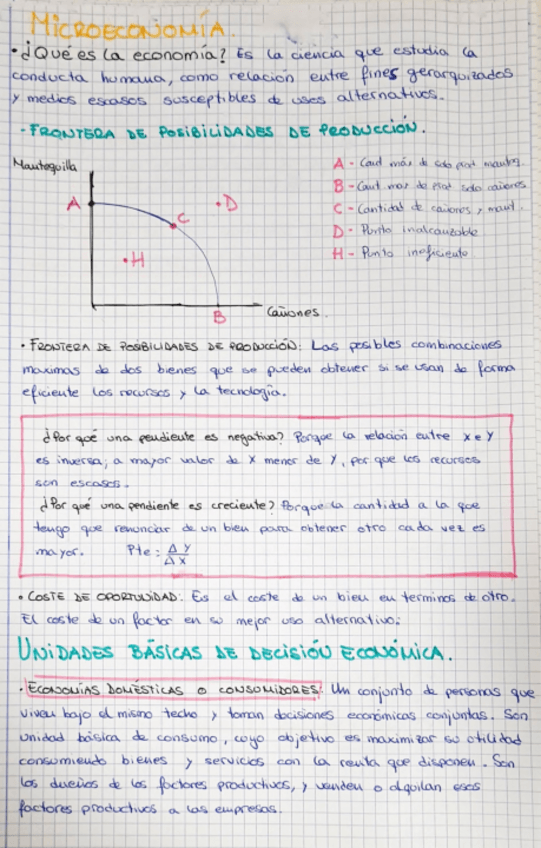 MICROECONOMÍA.
• ¿Qué es la economía? Es la ciencia que estudia la
conducta humana, como relación entre fines gerarquizados
y medios escasos susceptibles de usos alternativos.
- FRONTERA DE POSIBILIDADES DE PRODUCCIÓN.
Mantequilla
A
C
• D
• H
B
Cañones.
A - Cant más de solo prod manteq.
B - Cant mas de prod solo cañones
C - Cantidad de cañones y mant.
D - Punto inalcanzable
H - Punto ineficiente
• FRONTERA DE POSIBILIDADES DE PRODUCCIÓN: Las posibles combinaciones
maximas de dos bienes que se pueden obtener si se usan de forma
eficiente los recursos y la tecnología.
¿Por qué una pendiente es negativa? Porque la relación entre x e y
es inversa, a mayor valor de X menor de Y, por que los recursos
son escasos.
¿Por qué una pendiente es creciente? Porque la cantidad a la que
tengo que renunciar de un bien para obtener otro cada vez es
mayor. Pte: ΔY
ΔX
• COSTE DE OPORTUNIDAD: Es el coste de un bien en terminos de otro.
El coste de un factor en su mejor uso alternativo.
UNIDADES BÁSICAS DE DECISIÓN ECONÓMICA.
• ECONOMÍAS DOMÉSTICAS O CONSUMIDORES: Un conjunto de personas que
viven bajo el mismo techo y toman decisiones económicas conjuntas. Son
unidad básica de consumo, cuyo objetivo es maximizar su utilidad
consumiendo bienes y servicios con la renta que disponen. Son
los dueños de los factores productivos, y venden o alquilan esos
factores productivos a las empresas.